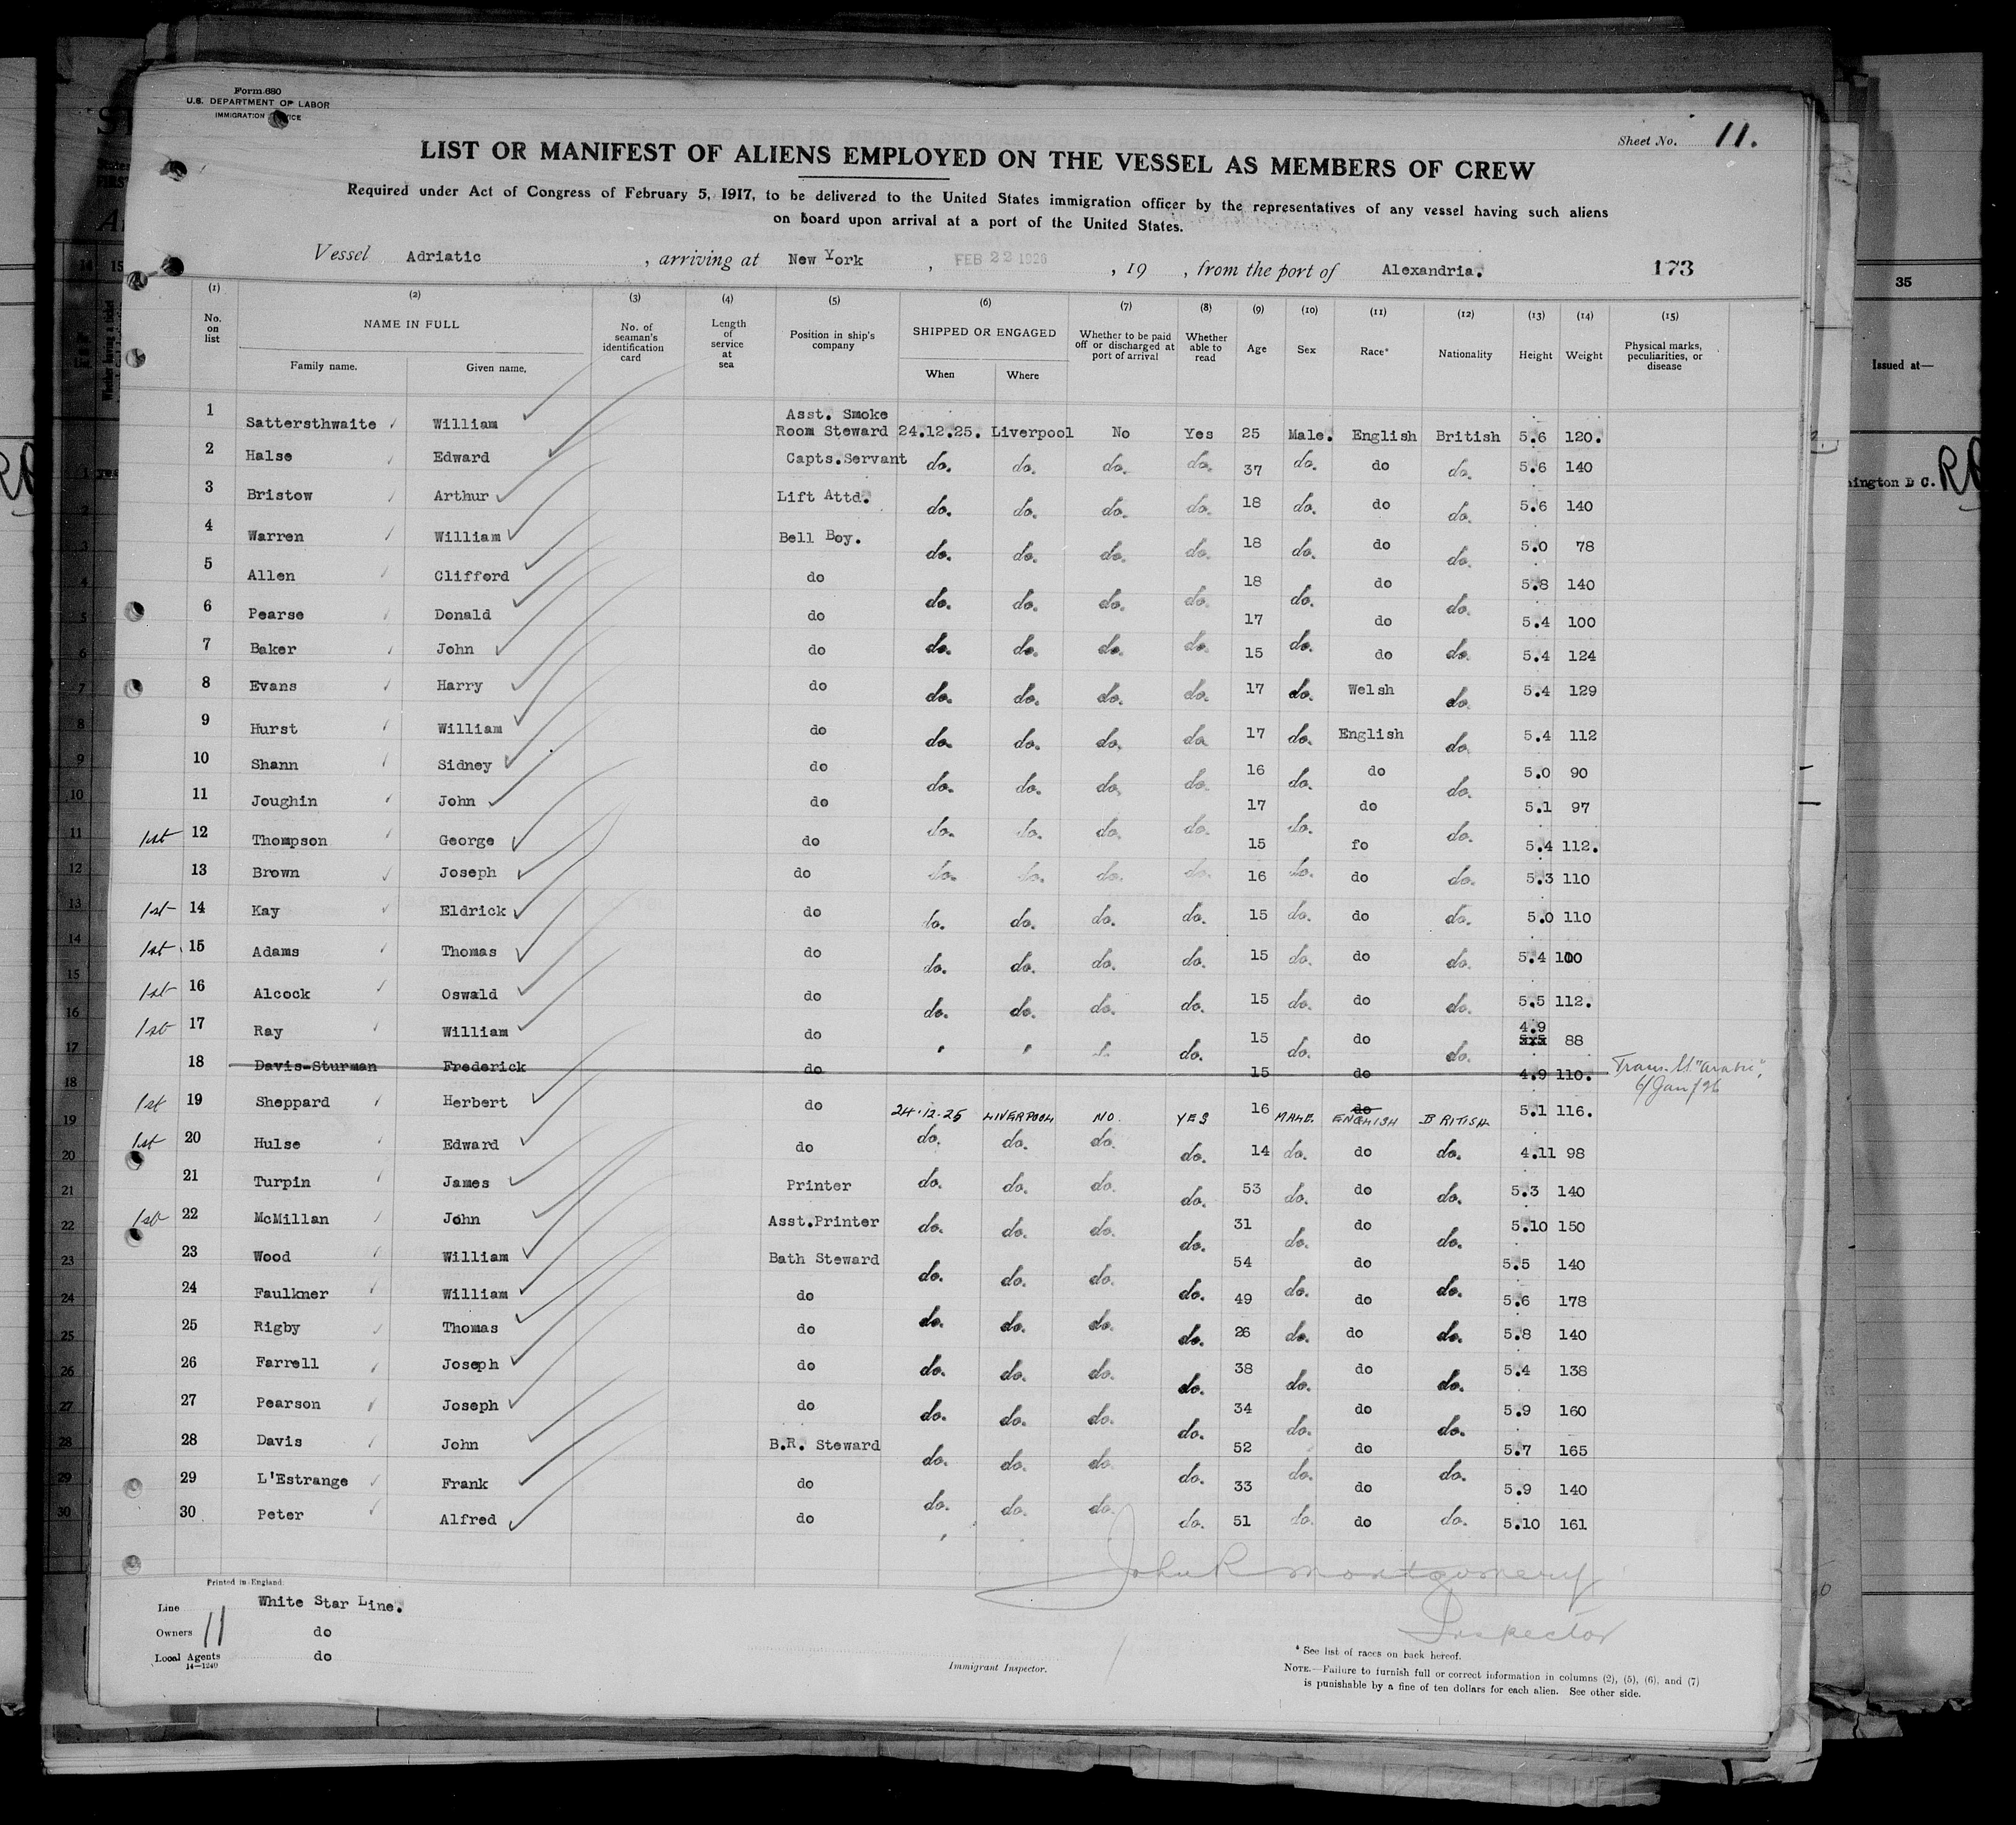 Form 680
U.S. DEPARTMENT OF LABOR
IMMIGRATION SERVICE
Sheet No. 11.
LIST OR MANIFEST OF ALIENS EMPLOYED ON THE VESSEL AS MEMBERS OF CREW
Required under Act of Congress of February 5, 1917, to be delivered to the United States immigration officer by the representatives of any vessel having such aliens
on board upon arrival at a port of the United States.
Vessel Adriatic, arriving at New York, FEB 22 1926, 19 , from the port of Alexandria. 173
(1) (2) (3) (4) (5) (6) (7) (8) (9) (10) (11) (12) (13) (14) (15)
No. on list NAME IN FULL Family name. Given name. No. of seaman's identification card Length of service at sea Position in ship's company SHIPPED OR ENGAGED When Where Whether to be paid off or discharged at port of arrival Whether able to read Age Sex Race* Nationality Height Weight Physical marks, peculiarities, or disease
1 Sattersthwaite William Asst. Smoke Room Steward 24.12.25. Liverpool No Yes 25 Male. English British 5.6 120.
2 Halse Edward Capts.Servant do. do. do. do. 37 do. do do. 5.6 140
3 Bristow Arthur Lift Attd. do. do. do. do. 18 do. do do. 5.6 140
4 Warren William Bell Boy. do. do. do. do. 18 do. do do. 5.0 78
5 Allen Clifford do do. do. do. do. 18 do. do do. 5.8 140
6 Pearse Donald do do. do. do. do. 17 do. do do. 5.4 100
7 Baker John do do. do. do. do. 15 do. do do. 5.4 124
8 Evans Harry do do. do. do. do. 17 do. Welsh do. 5.4 129
9 Hurst William do do. do. do. do 17 do. English do. 5.4 112
10 Shann Sidney do do. do. do. do. 16 do. do do. 5.0 90
11 Joughin John do do. do. do. do. 17 do. do do. 5.1 97
1st 12 Thompson George do do. do. do. do. 15 do. fo do. 5.4 112.
13 Brown Joseph do do. do. do. do. 16 do. do do. 5.3 110
1st 14 Kay Eldrick do do. do. do. do. 15 do. do do. 5.0 110
1st 15 Adams Thomas do do. do. do. do. 15 do. do do. 5.4 100
1st 16 Alcock Oswald do do. do. do. do. 15 do. do do. 5.5 112.
1st 17 Ray William do do. 15 do. do do. 4.9 88
18 Davis-Sturman Frederick do 15 do 4.9 110. Trans. "Arabic", 6/Jan/26
1st 19 Sheppard Herbert do 24.12.25 LIVERPOOL NO. YES 16 MALE. do ENGLISH BRITISH 5.1 116.
1st 20 Hulse Edward do do. do. do. do. 14 do. do do. 4.11 98
21 Turpin James Printer do. do. do. do. 53 do. do do. 5.3 140
1st 22 McMillan John Asst.Printer do. do. do. do. 31 do. do do. 5.10 150
23 Wood William Bath Steward do. do. do. do. 54 do. do do. 5.5 140
24 Faulkner William do do. do. do. do. 49 do. do do. 5.6 178
25 Rigby Thomas do do. do. do. do. 26 do. do do. 5.8 140
26 Farrell Joseph do do. do. do. do. 38 do. do do. 5.4 138
27 Pearson Joseph do do. do. do. do. 34 do. do do. 5.9 160
28 Davis John B.R. Steward do. do. do. do. 52 do. do do. 5.7 165
29 L'Estrange Frank do do. do. do. do. 33 do. do 5.9 140
30 Peter Alfred do do. 51 do. do do. 5.10 161
John R Montgomery
Inspector
Printed in England.
Line White Star Line.
Owners 11 do
Local Agents do
14—1240
Immigrant Inspector.
* See list of races on back hereof.
NOTE.—Failure to furnish full or correct information in columns (2), (5), (6), and (7)
is punishable by a fine of ten dollars for each alien. See other side.
35
Issued at—
ington D C.